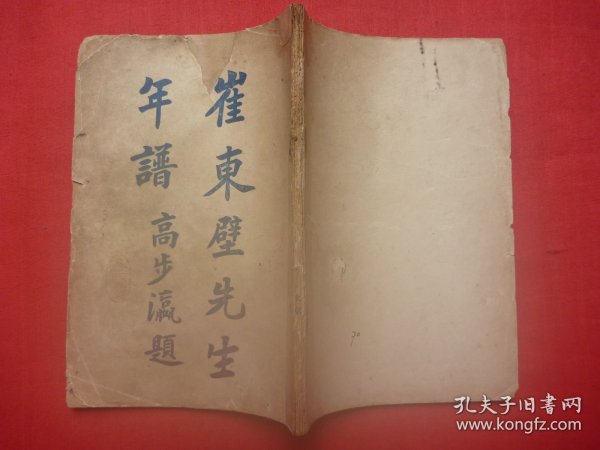 崔東壁先生
年譜
高步瀛題
70
孔夫子旧书网
www.kongfz.com